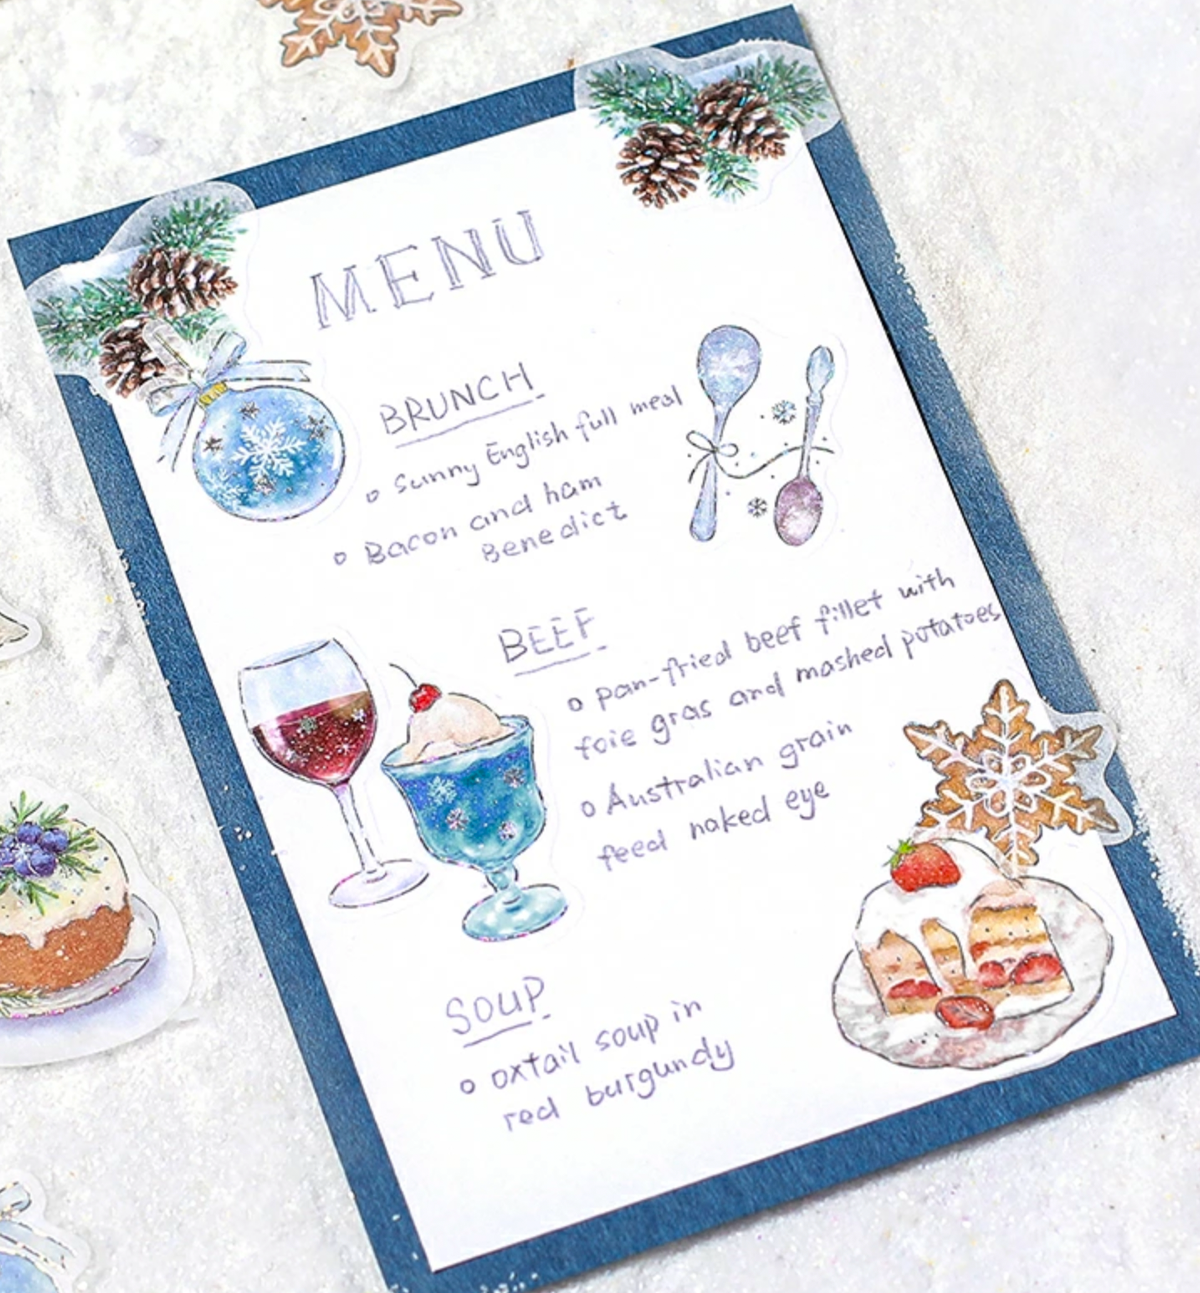 MENU
BRUNCH
o Sunny English full meal
o Bacon and ham
Benedict
BEEF
o pan-fried beef fillet with
foie gras and mashed potatoes
o Australian grain
feed naked eye
SOUP
o oxtail soup in
red burgundy